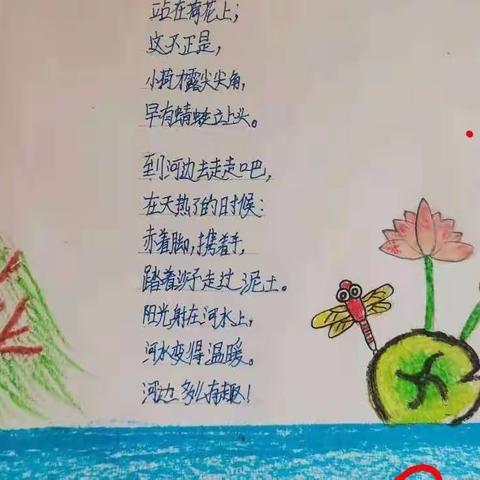 站在荷花上；
这不正是，
小荷才露尖尖角，
早有蜻蜓立上头。
到河边去走走吧，
在天热了的日时候：
赤着脚，携着手，
踏着沙子走过泥土。
阳光射在河水上，
河水变得温暖。
河边多么有趣！